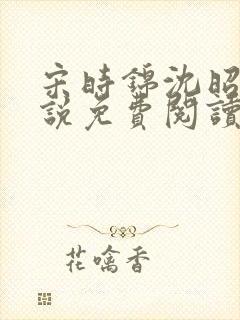 宋時錦沈昭
說免費閱讀
花噙香